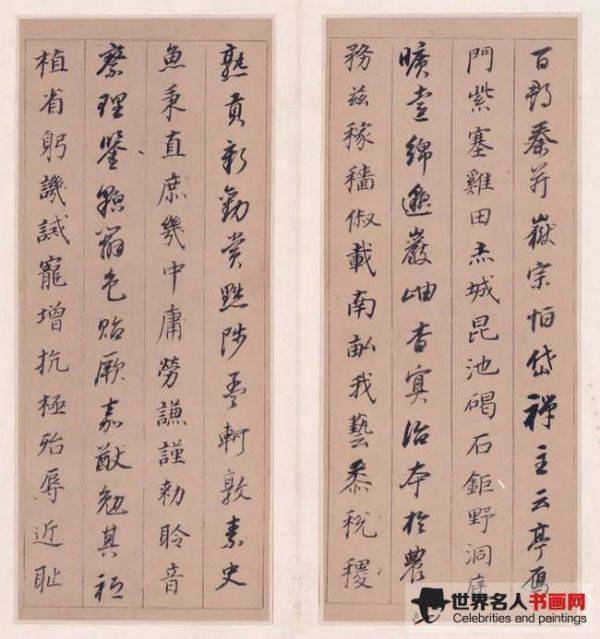 百郡秦并嶽宗恒岱禪主云亭雁
門紫塞雞田赤城昆池碣石鉅野洞庭
曠遠綿邈巖岫杳冥治本於農
務茲稼穡俶載南畝我藝黍稅稷
熟貢新勸賞黜陟孟軻敦素史
魚秉直庶幾中庸勞謙謹勅聆音
察理鑒貌辨色貽厥嘉猷勉其祗
植省躬譏誡寵增抗極殆辱近耻
世界名人书画网
Celebrities and paintings